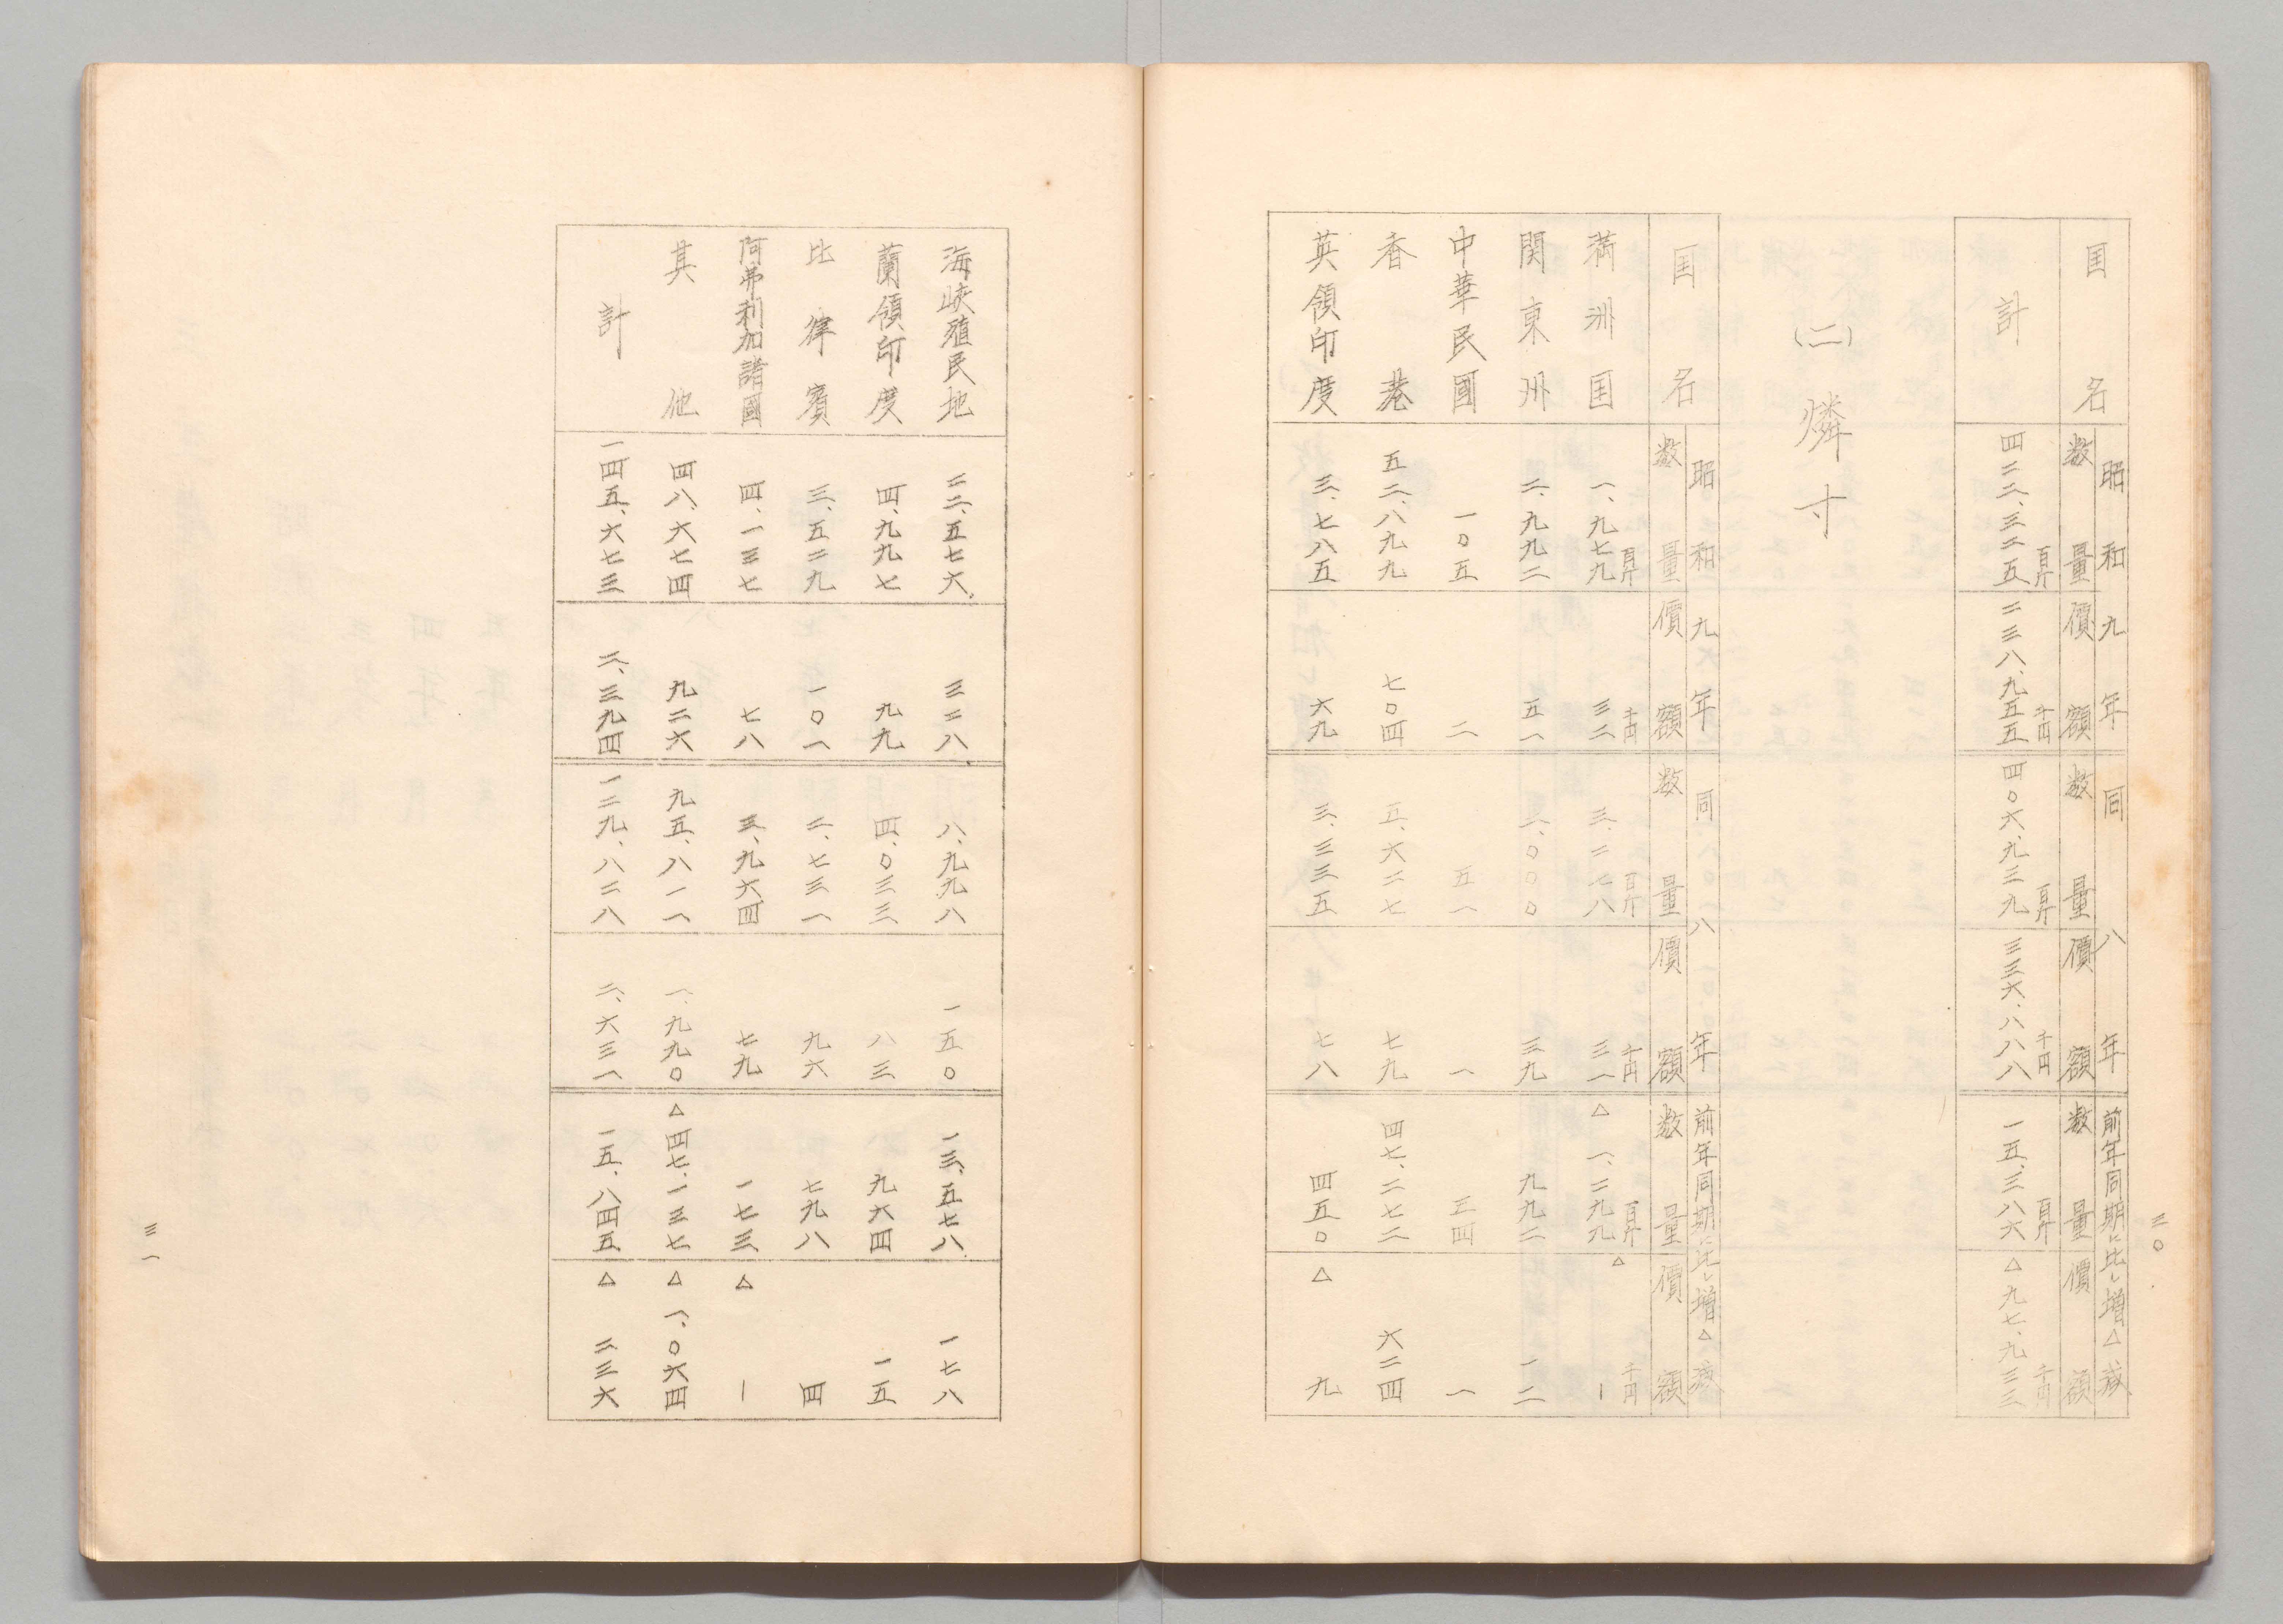 三〇
昭和九年 同八年 前年同期ニ比シ増△減
国名 数量 價額 数量 價額 数量 價額
百斤 千円 百斤 千円 百斤 千円
計 四二二、三二五 二三八、九五五 四〇六、九三九 三三六、八八八 一五、三八六 △九七、九三三
(二)燐寸
昭和九年 同八年 前年同期ニ比シ増△減
国名 数量 價額 数量 價額 数量 價額
百斤 千円 百斤 千円 百斤 千円
満洲国 一、九七九 三二 三、二七八 三一 △一、二九九 △ー
関東州 二、九九二 五一 二、〇〇〇 三九 九九二 一二
中華民國 一〇五 二 五一 一 五四 一
香港 五二、八九九 七〇四 五、六二七 七九 四七、二七二 六二四
英領印度 三、七八五 六九 三、三三五 七八 四五〇 △九
海峡殖民地 二二、五七六 三二八 八、九九八 一五〇 一三、五七八 一七八
蘭領印度 四、九九七 九九 四、〇三三 八三 九六四 一五
比律賓 三、五二九 一〇一 二、七三一 九六 七九八 四
阿弗利加諸國 四、一三七 七八 三、九六四 七九 一七三 △ー
其他 四八、六七四 九二六 九五、八一一 一、九九〇 △四七、一三七 △一、〇六四
計 一四五、六七三 二、三九四 一二九、八二八 二、六三一 一五、八四五 △二三六
三一